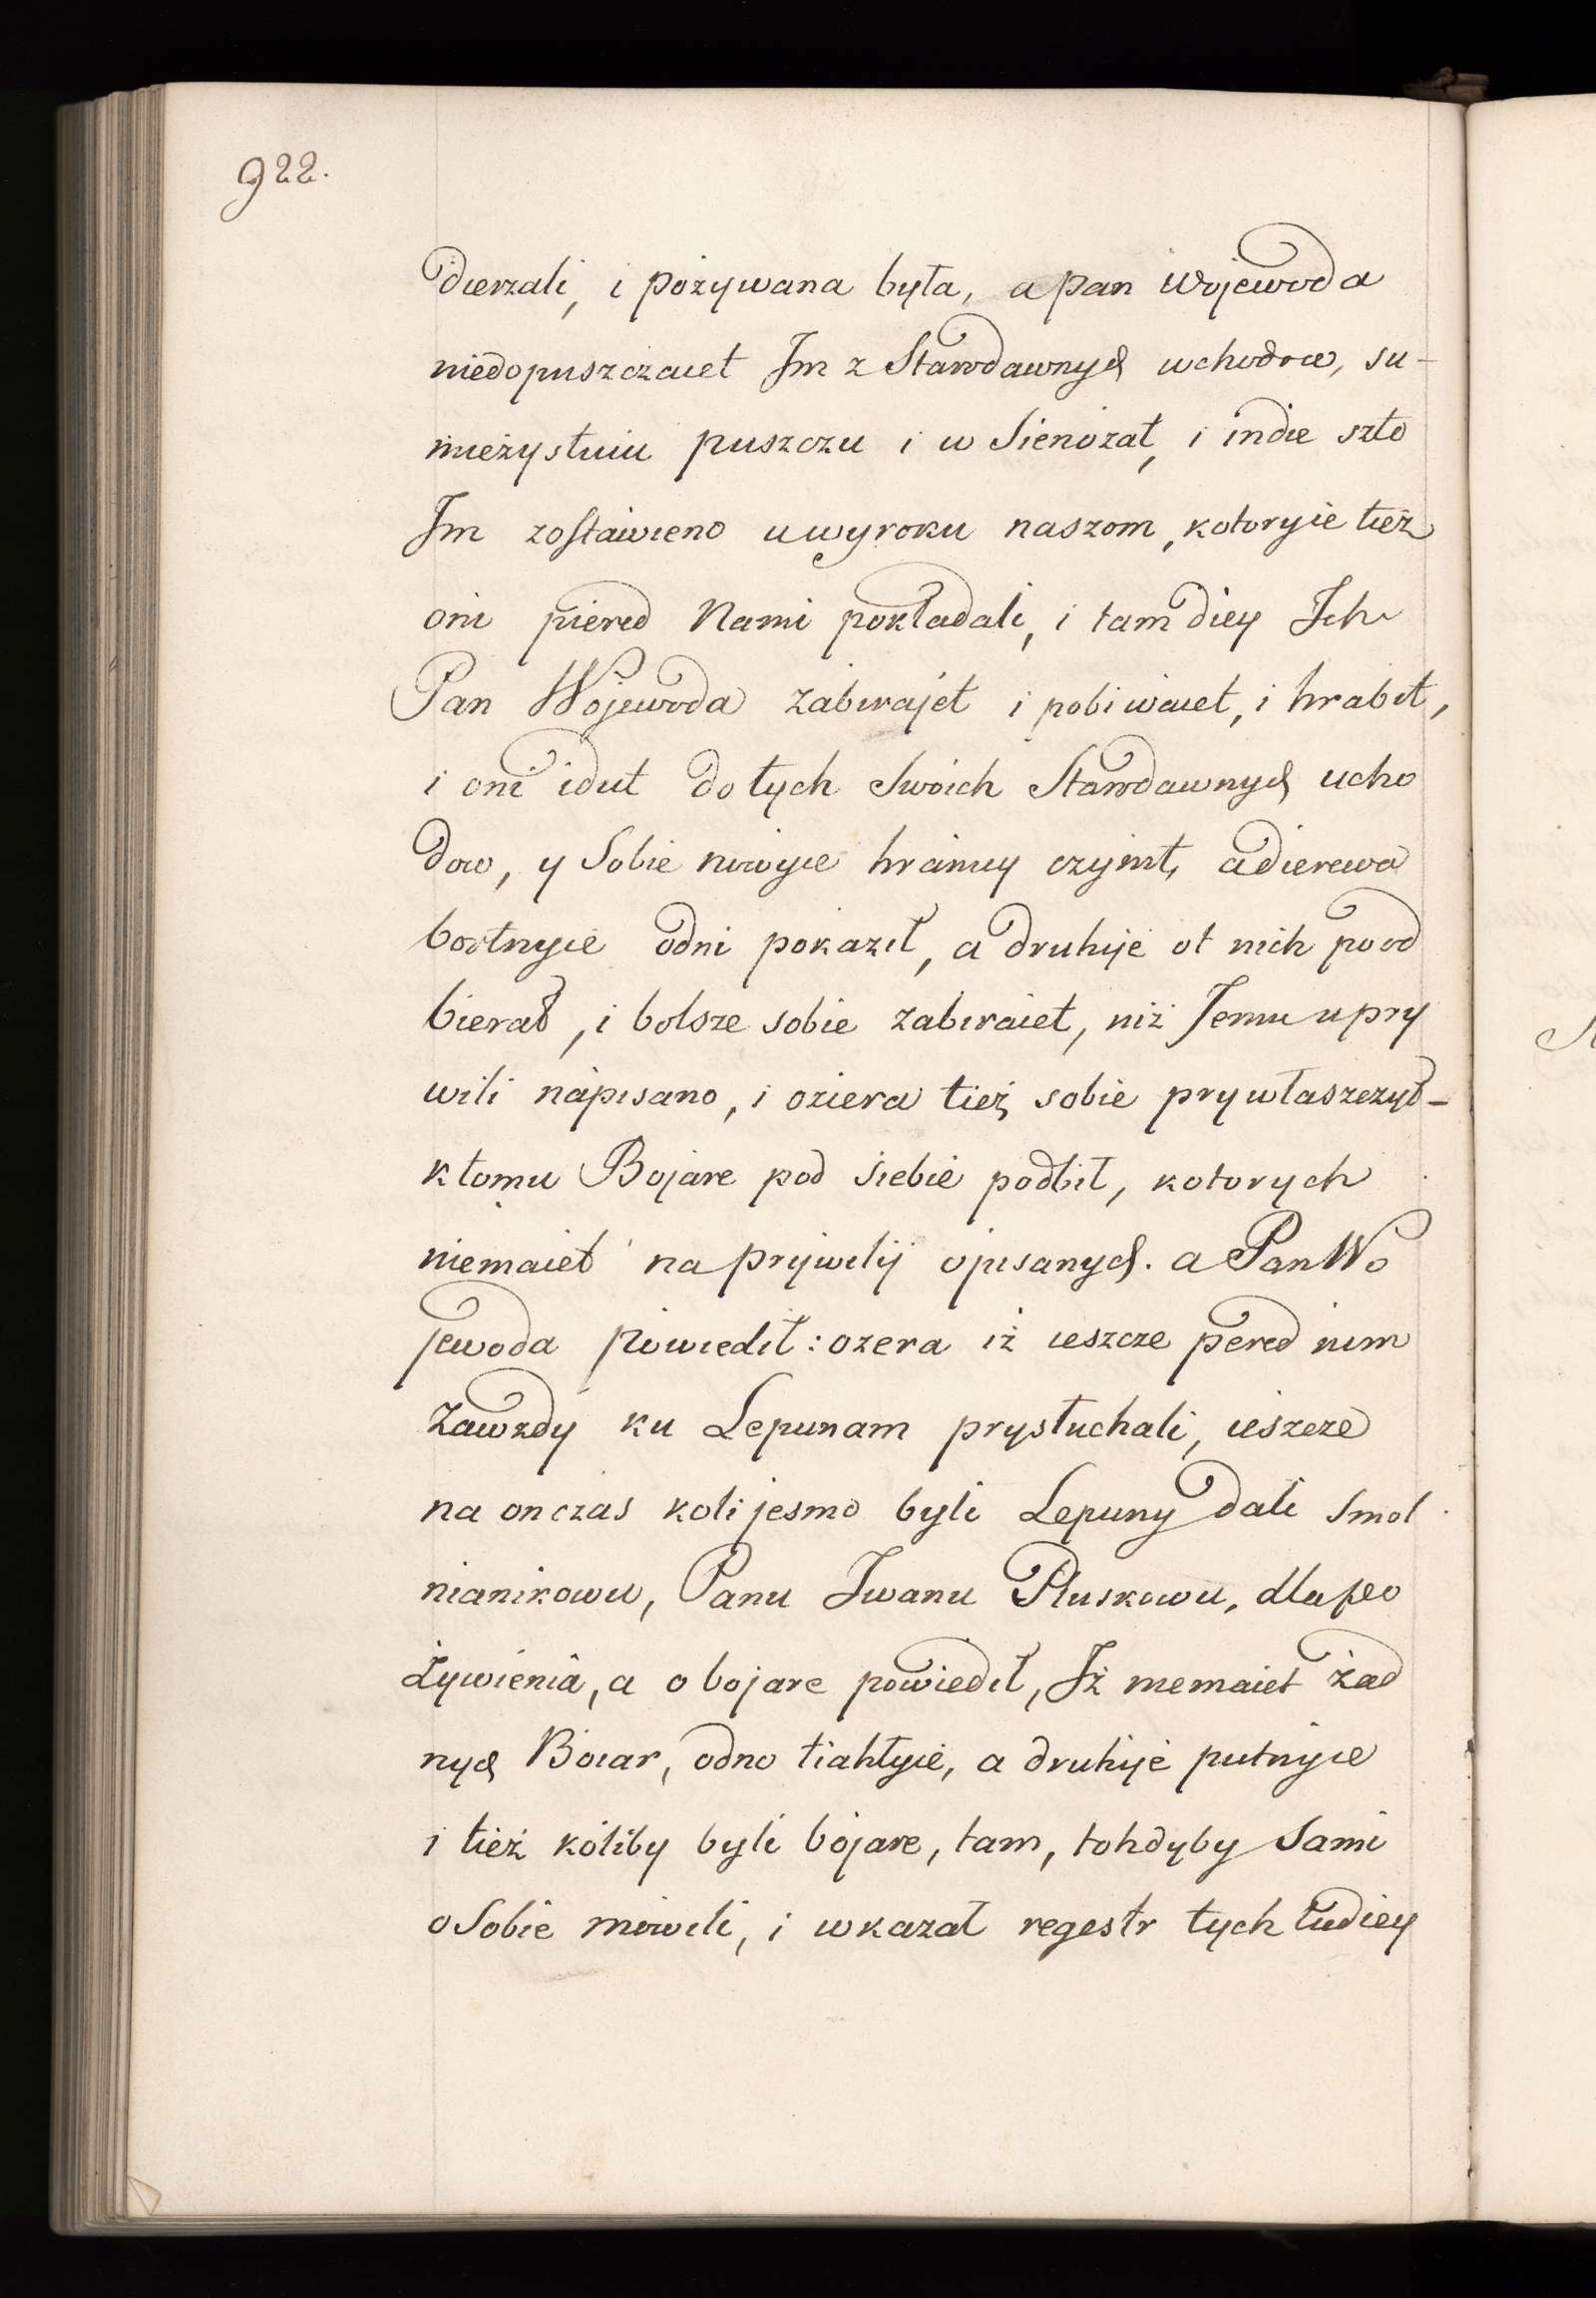 922.
dierzali, i pożywana była, a pan Wojewoda
niedopuszczaiet Im z Starodawnych wchodow, su-
mieżystuiu puszczu i w Sienożat, i indie szto
Im zostawieno u wyroku naszom, kotoryie tież
oni piered Nami pokładali, i tam diey Ich
Pan Wojewoda zabirajet i pobiwaiet, i hrabit,
i oni idut do tych Swoich Starodawnych ucho
dow, y Sobie nowyie hranicy czynit, a dierewa
bortnyie odni pokaził, a druhije ot nich pood
bierał, i bolsze sobie zabiraiet, niż Jemu u pry
wili napisano, i oziera tież sobie prywłaszczył-
k tomu Bojare pod siebie podbił, kotorych
niemaiet na prijwilij opisanych. a Pan Wo
jewoda powiedił: ozera iż ieszcze pered nim
Zawzdy ku Lepunam prysłuchali, ieszcze
na onczas koli jesmo byli Lepuny dali Smol
nianikowu, Panu Iwanu Pluskowu, dla po
żywienia, a o bojare powiedił, Iż niemaiet żad
nych Boiar, odno tiahłyie, a druhije putnyie
i tież koliby byli bojare, tam, tohdyby Sami
o Sobie mowili, i wkazał regestr tych ludiey